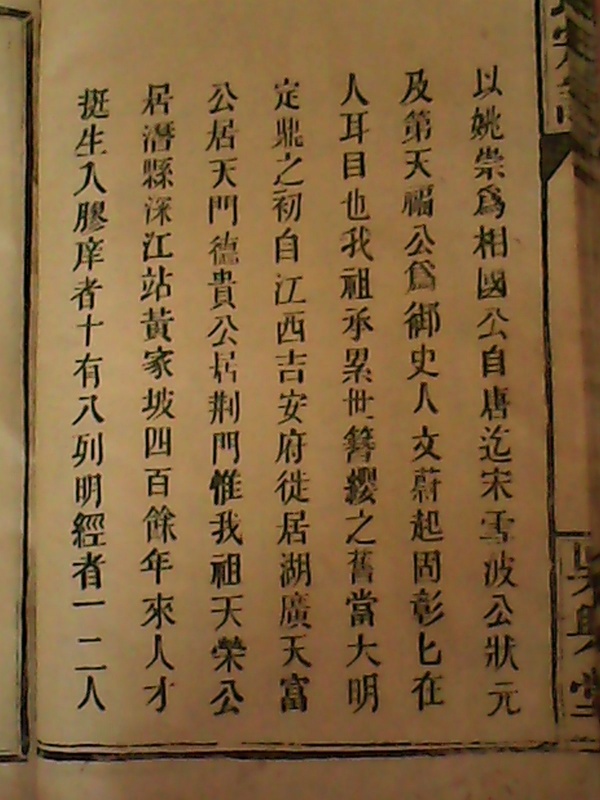 以姚崇爲相國公自唐迄宋雪波公狀元
及第天福公爲御史人文蔚起固彰匕在
人耳目也我祖承累世簪纓之舊當大明
定鼎之初自江西吉安府徙居湖廣天富
公居天門德貴公居荆門惟我祖天榮公
居潛縣深江站黃家坡四百餘年來人才
挺生入膠庠者十有八列明經者一二人